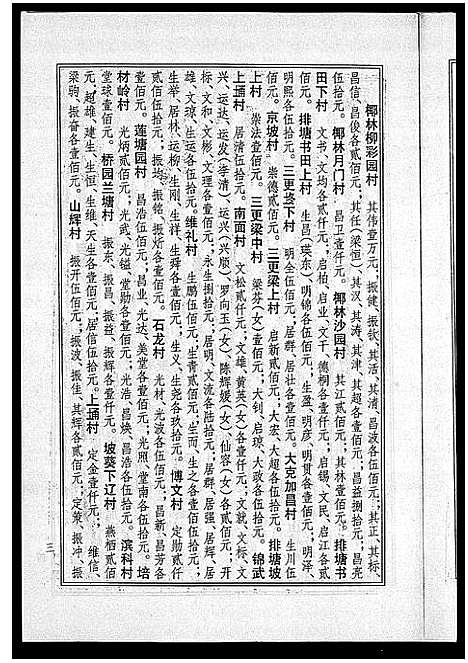 椰林柳彩园村　其伟壹万元；振健、振钦、其活、其清、昌波各伍佰元；其正、其标、
昌信、昌俊各贰佰元；其任(梁恒)、其汉、其涛、其津、其超各壹佰元；昌益捌拾元；昌亮
伍拾元。椰林月门村　昌卫壹仟元。椰林沙园村　其江贰佰元；其林壹佰元。排塘书
田下村　文书、文均各贰仟元；启柏、启业、文千、德桐各壹佰元；启锡、文民、启江各贰
佰元。排塘书田上村　生昌(瑛东)、明锦各伍佰元；生盈、明彦、明贯各壹佰元；明泽、
明熙各伍拾元。三更坽下村　明全伍佰元；居群、居壮各壹佰元。大克加昌村　生川伍
佰元。京坡村　崇德贰佰元。三更梁上村　启新贰佰元；大宏、大超各伍拾元。排塘坡
上村　崇法壹佰元。三更梁中村　梁芬(女)壹佰元；大钊、启琼、大政各伍拾元。锦武
上埇村　居清伍拾元。南面村　文松贰仟元；文雄、黄英(女)各壹仟元；文就、文标、文
兴、运达、运发(李清)、运兴(兴顺)、罗向玉(女)、陈辉媛(女)、仙容(女)各贰佰元；开
标、文和、文彬、文理各壹佰元；永生捌拾元；居明、文流各陆拾元；居群、居强、居辉、居
雄、文琼、生运各伍拾元。维礼村　生鹏伍佰元；生青贰佰元；生而、生之各壹佰伍拾元；
生举、居林、运柳、生刚、生祥、生舜各壹佰元；生义、生尧各玖拾元。博文村　定勋贰仟
贰佰元；振均、振铭、振炘各壹佰元。石龙村　光材、光波各伍佰元；昌新、昌芳各
壹佰元。莲塘园村　昌浩伍佰元；昌业、光达、美堂各壹佰元；光照、堂南各伍拾元。培
材岭村　光炳贰佰元；光武、光镒、堂勋各壹佰元；光浩、昌焕、昌浩各伍拾元。滨科村
堂球壹佰元。桥园兰塘村　振东、振昌、振益、振辉各壹仟元。坡葵下辽村　燕栖贰佰
元；超雄、建生、生恒、生维、天生各壹佰元；居信伍拾元。上埇村　定金壹仟元；维信、
梁驹、振奋各壹佰元。山辉村　振开伍佰元；振波、振佳、其辉各贰佰元；定策、振冲、振
三